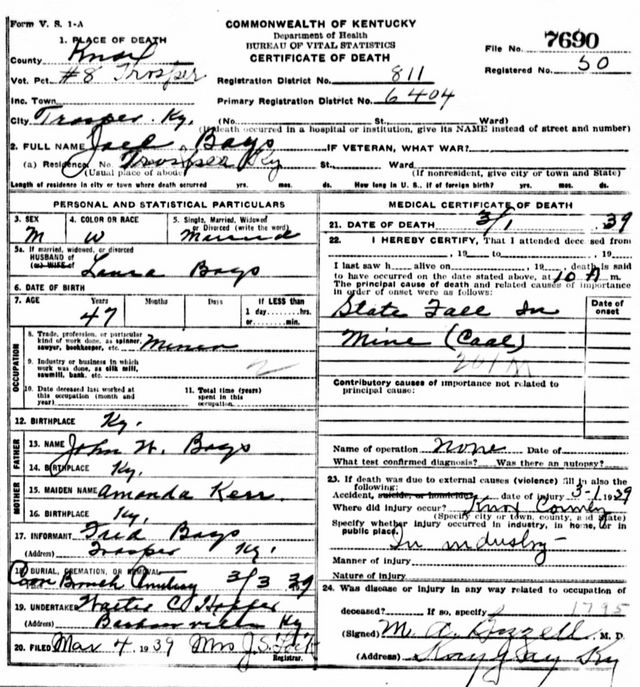 Form V. S. 1-A
COMMONWEALTH OF KENTUCKY
Department of Health
BUREAU OF VITAL STATISTICS
CERTIFICATE OF DEATH
File No. 7690
Registered No. 50
1. PLACE OF DEATH
County Knox
Vot. Pct. #8 Trosper
Registration District No. 811
Inc. Town
Primary Registration District No. 6404
City Trosper Ky. (No. St. Ward)
(If death occurred in a hospital or institution, give its NAME instead of street and number)
2. FULL NAME Bays IF VETERAN, WHAT WAR?
(a) Residence. No. Trosper Ky St. Ward
(Usual place of abode) (If nonresident, give city or town and State)
Length of residence in city or town where death occurred yrs. mos. ds. How long in U. S., if of foreign birth? yrs. mos. ds.
PERSONAL AND STATISTICAL PARTICULARS
3. SEX M
4. COLOR OR RACE W
5. Single, Married, Widowed or Divorced (write the word) Married
5a. If married, widowed, or divorced
HUSBAND of
(or) WIFE of Laura Bays
6. DATE OF BIRTH
7. AGE Years Months Days If LESS than
47 1 day hrs.
or min.
OCCUPATION
8. Trade, profession, or particular
kind of work done, as spinner,
sawyer, bookkeeper, etc. Miner
9. Industry or business in which
work was done, as silk mill,
sawmill, bank, etc. 2
10. Date deceased last worked at
this occupation (month and
year)
11. Total time (years)
spent in this
occupation
12. BIRTHPLACE Ky.
FATHER
13. NAME John H. Bays
14. BIRTHPLACE Ky.
MOTHER
15. MAIDEN NAME Amanda Kerr.
16. BIRTHPLACE Ky,
17. INFORMANT Fred Bays
(Address) Trosper Ky.
18. BURIAL, CREMATION, OR REMOVAL
Branch 3/3 39
19. UNDERTAKER Walter C. Hopper
Barbourville Ky
20. FILED Mar 4 1939 Mrs J. S.
Registrar.
MEDICAL CERTIFICATE OF DEATH
21. DATE OF DEATH 3/1 39
22. I HEREBY CERTIFY, That I attended deceased from
, 19 to , 19
I last saw h alive on , 19 , death is said
to have occurred on the date stated above, at 10 A m.
The principal cause of death and related causes of importance
in order of onset were as follows:
Date of
onset
Slate Fall In
Mine (Coal)
Contributory causes of importance not related to
principal cause:
Name of operation none Date of
What test confirmed diagnosis? Was there an autopsy?
23. If death was due to external causes (violence) fill in also the
following:
Accident, suicide, or homicide date of injury 3-1 1939
Where did injury occur? Knox County
(Specify city or town, county, and State)
Specify whether injury occurred in industry, in home, or in
public place.
In industry
Manner of injury
Nature of injury
24. Was disease or injury in any way related to occupation of
deceased? If so, specify 1795
(Signed) M. D.
(Address) Kay Jay Ky